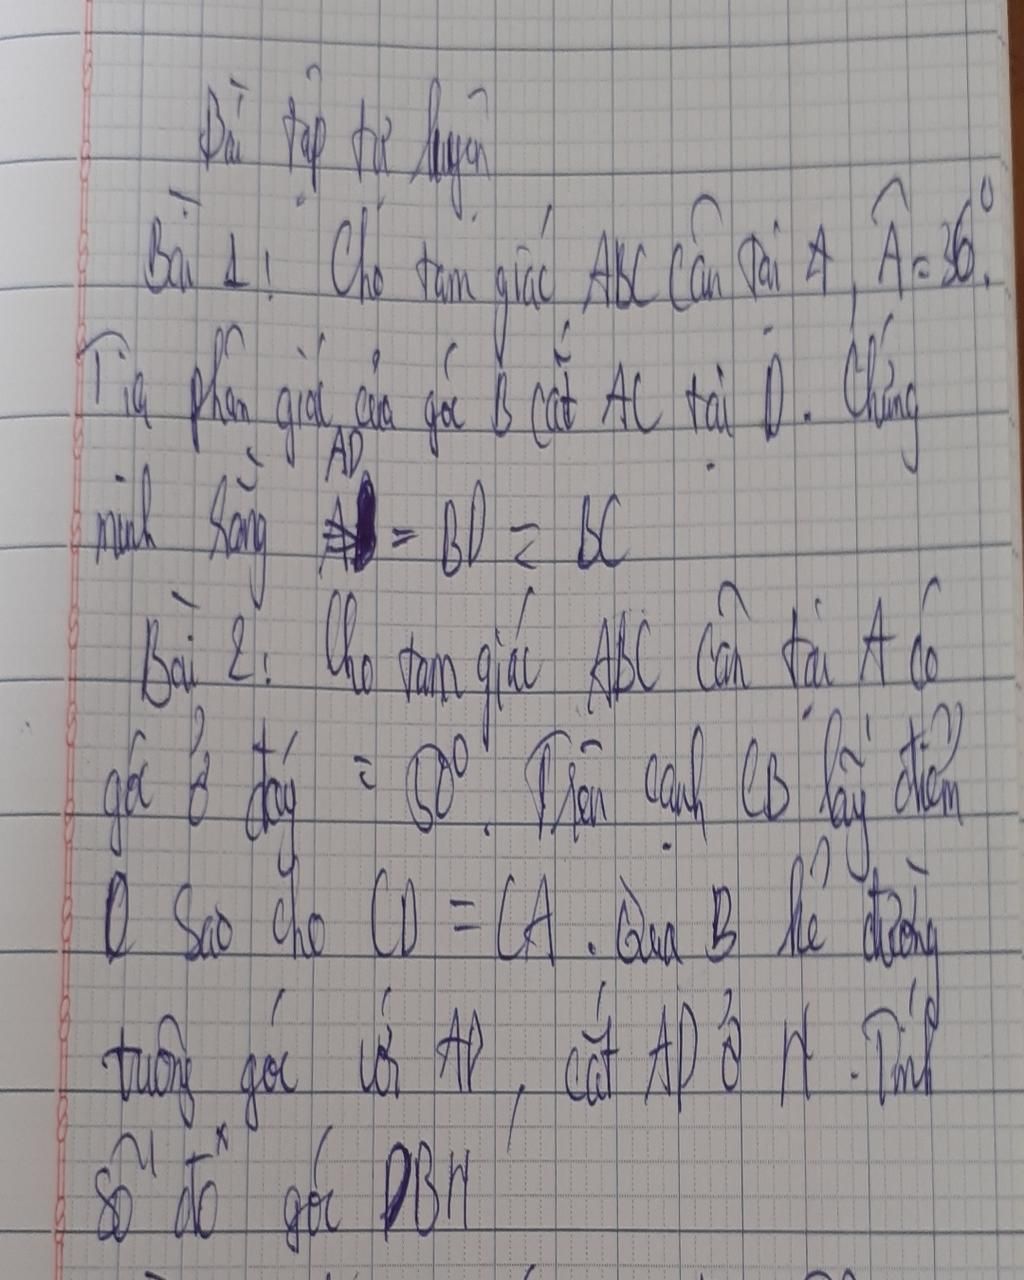 Bài tập tự luyện
Bài 1: Cho tam giác ABC cân tại A, Â = 36⁰.
Tia phân giác của góc B cắt AC tại D. Chứng
minh rằng AD = BD = BC
Bài 2: Cho tam giác ABC cân tại A có
góc ở đáy = 50⁰. Trên cạnh CB lấy điểm
D sao cho CD = CA. Qua B kẻ đường
vuông góc với AD, cắt AD ở H. Tính
số đo góc DBH